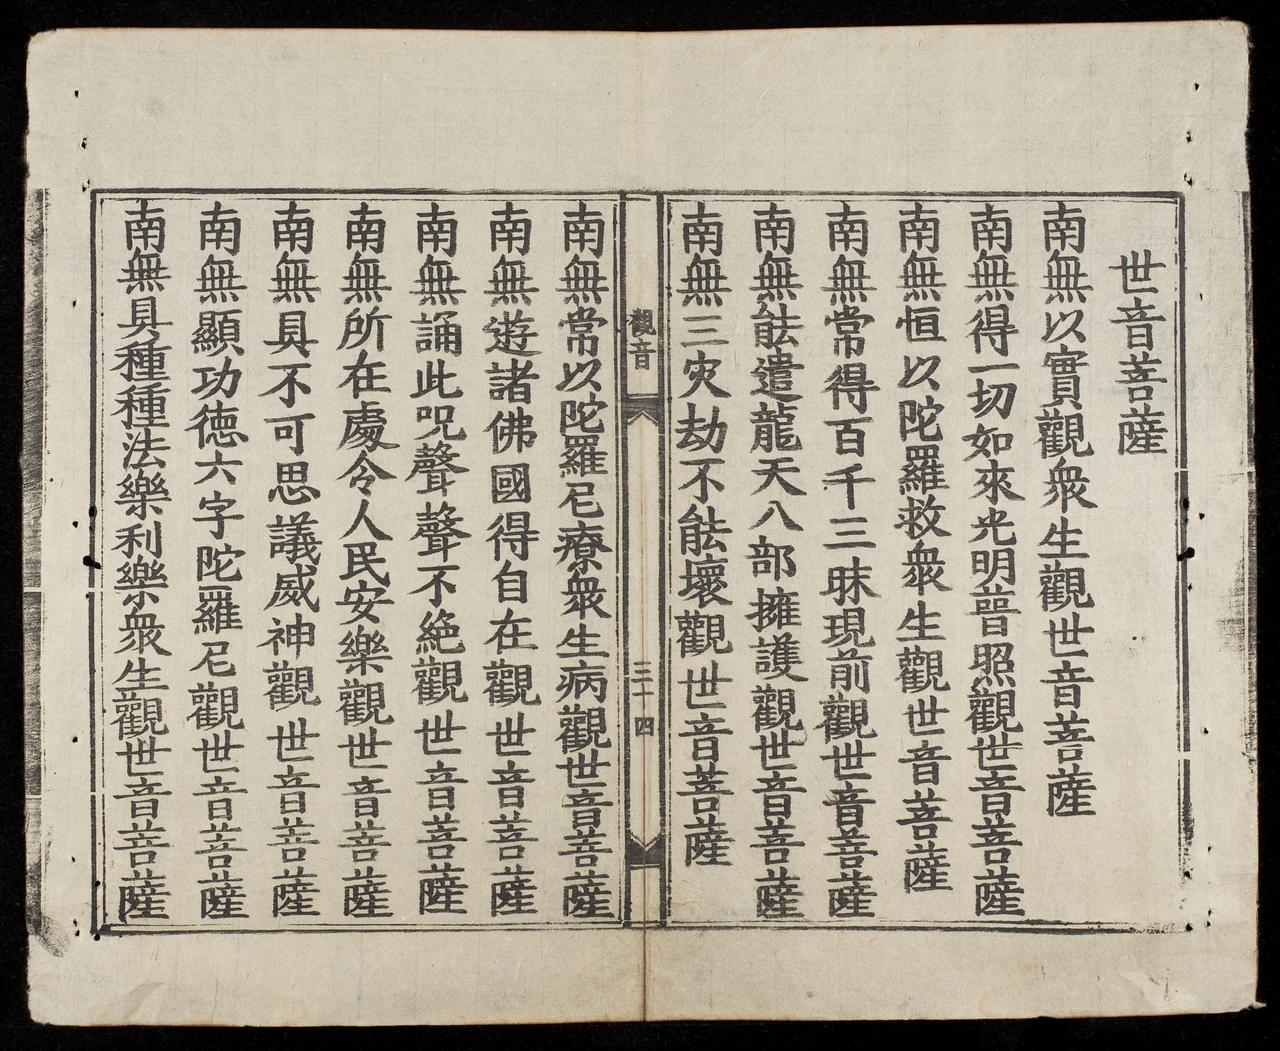 世音菩薩
南無以實觀衆生觀世音菩薩
南無得一切如來光明普照觀世音菩薩
南無恒以陀羅救衆生觀世音菩薩
南無常得百千三昧現前觀世音菩薩
南無能遣龍天八部擁護觀世音菩薩
南無三灾劫不能壞觀世音菩薩
觀音
三十四
南無常以陀羅尼療衆生病觀世音菩薩
南無遊諸佛國得自在觀世音菩薩
南無誦此呪聲聲不絶觀世音菩薩
南無所在處令人民安樂觀世音菩薩
南無具不可思議威神觀世音菩薩
南無顯功德六字陀羅尼觀世音菩薩
南無具種種法樂利樂衆生觀世音菩薩